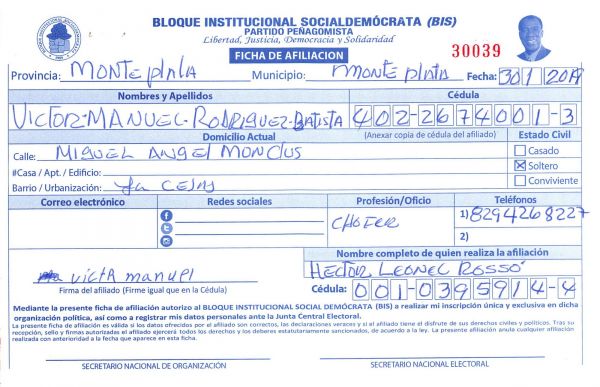 BLOQUE INSTITUCIONAL SOCIALDEMÓCRATA (BIS)
PARTIDO PEÑAGOMISTA
Libertad, Justicia, Democracia y Solidaridad
FICHA DE AFILIACION
30039
Provincia: MONTE PLATA Municipio: MONTE PLATA Fecha: 30/1/2019
Nombres y Apellidos Cédula
VICTOR-MANUEL-RODRIGUEZ-BATISTA 402-2674001-3
Domicilio Actual (Anexar copia de cédula del afiliado) Estado Civil
Calle: MIGUEL ANGEL MONCLUS Casado
#Casa / Apt. / Edificio: Soltero
Barrio / Urbanización: La CEJAS Conviviente
Correo electrónico Redes sociales Profesión/Oficio Teléfonos
CHOFER 1) 8294268227
2)
Nombre completo de quien realiza la afiliación
victor manuel HECTOR LEONEL ROSSÓ
Firma del afiliado (Firme igual que en la Cédula) Cédula: 001-0395914-4
Mediante la presente ficha de afiliación autorizo al BLOQUE INSTITUCIONAL SOCIAL DEMÓCRATA (BIS) a realizar mi inscripción única y exclusiva en dicha
organización política, así como a registrar mis datos personales ante la Junta Central Electoral.
La presente ficha de afiliación es válida si los datos ofrecidos por el afiliado son correctos, las declaraciones veraces y si al afiliado tiene el disfrute de sus derechos civiles y políticos. Tras su
recepción, sello y firmas autorizadas el afiliado ejercerá todos los derechos y los deberes estatutariamente sancionados, de acuerdo a la ley. La presente afiliación anula cualquier afiliación
realizada con anterioridad a la fecha que aparece en esta ficha.
SECRETARIO NACIONAL DE ORGANIZACIÓN SECRETARIO NACIONAL ELECTORAL